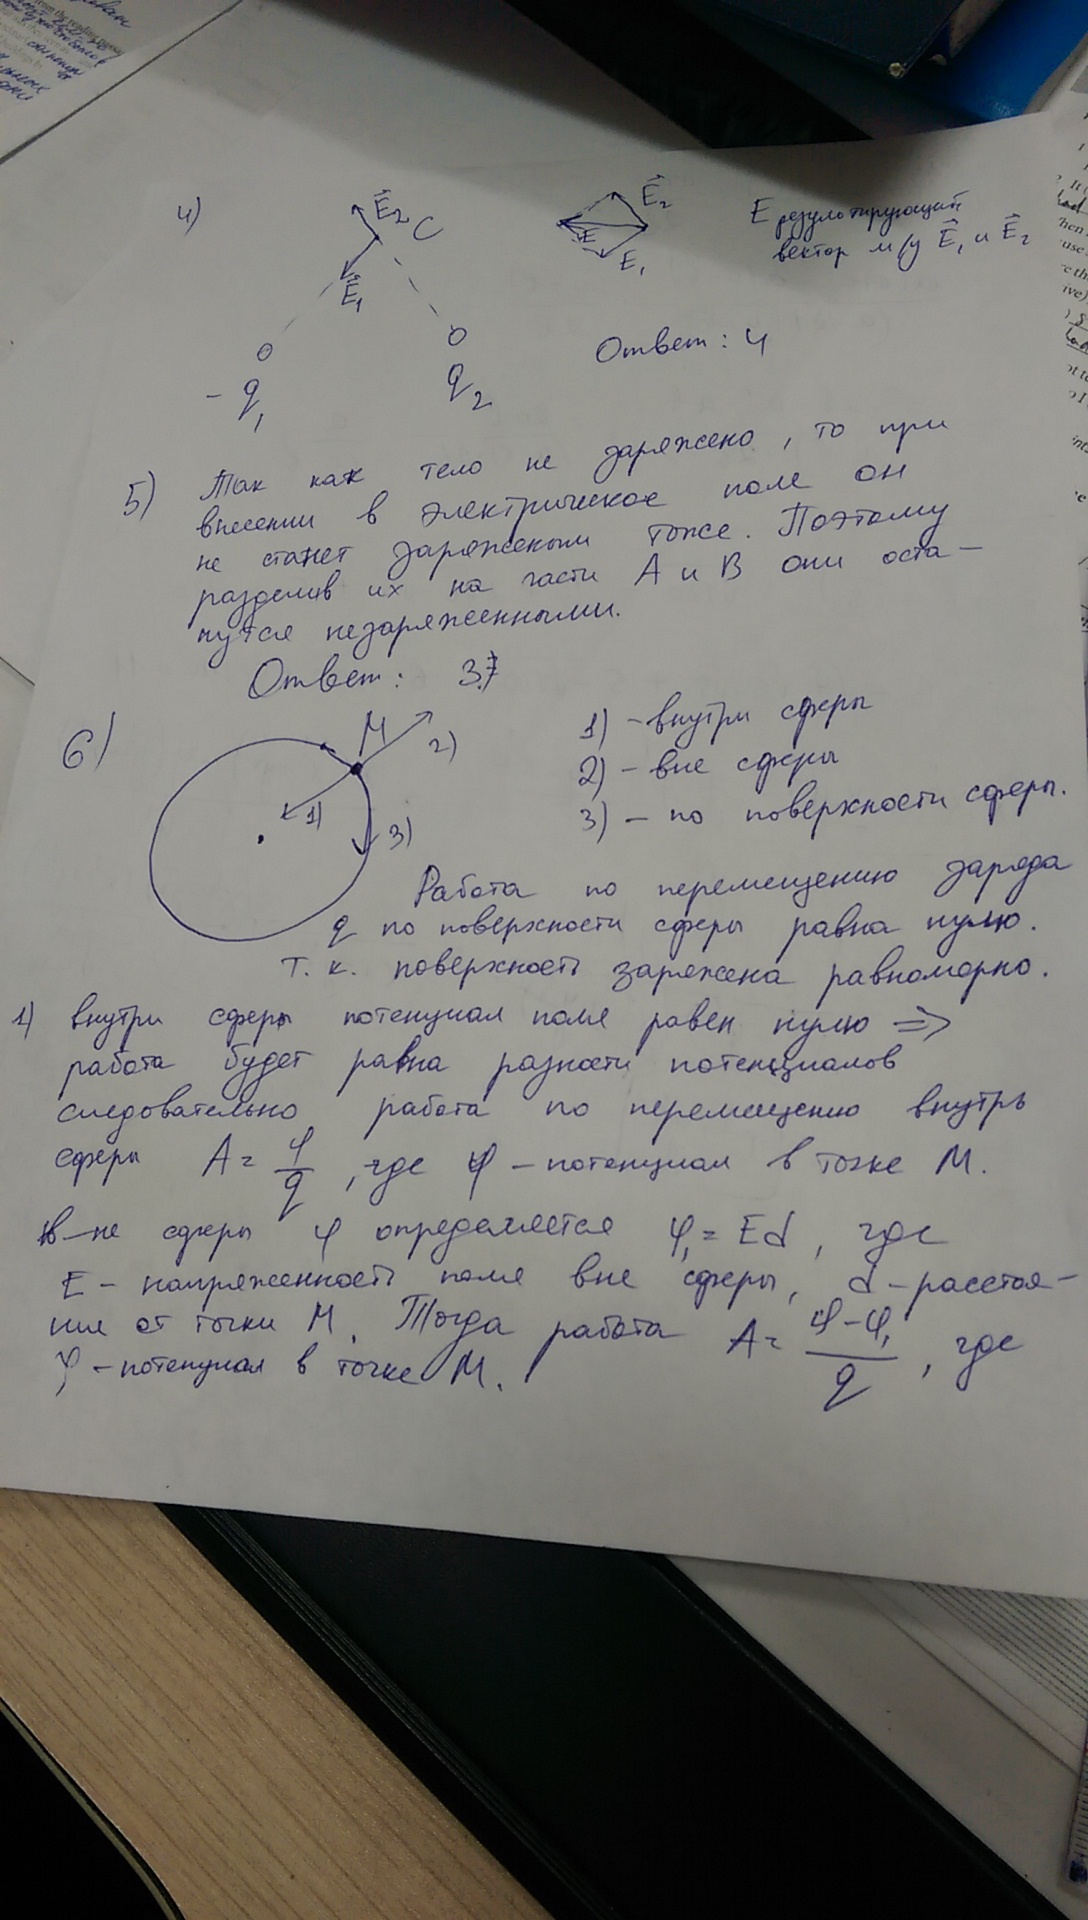 4)
E⃗₂ C
E⃗₁
- q₁
q₂
E⃗₂
E
E₁
E результирующий
вектор м/у E⃗₁ и E⃗₂
Ответ: 4
5) Так как тело не заряжено, то при
внесении в электрическое поле он
не станет заряженым тоже. Поэтому
разделив их на части А и В они оста-
нутся незаряженными.
Ответ: 3
6)
M
2)
1)
3)
1) - внутри сферы
2) - вне сферы
3) - по поверхности сферы.
Работа по перемещению заряда
q по поверхности сферы равна нулю.
т. к. поверхность заряжена равномерно.
1) внутри сферы потенциал поля равен нулю =>
работа будет равна разности потенциалов
следовательно работа по перемещению внутрь
сферы A = φ/q, где φ - потенциал в точке М.
в-не сферы φ определяется φ₁ = Ed, где
E - напряженность поля вне сферы, d - расстоя-
ние от точки М. Тогда работа A = φ-φ₁/q, где
φ - потенциал в точке М.